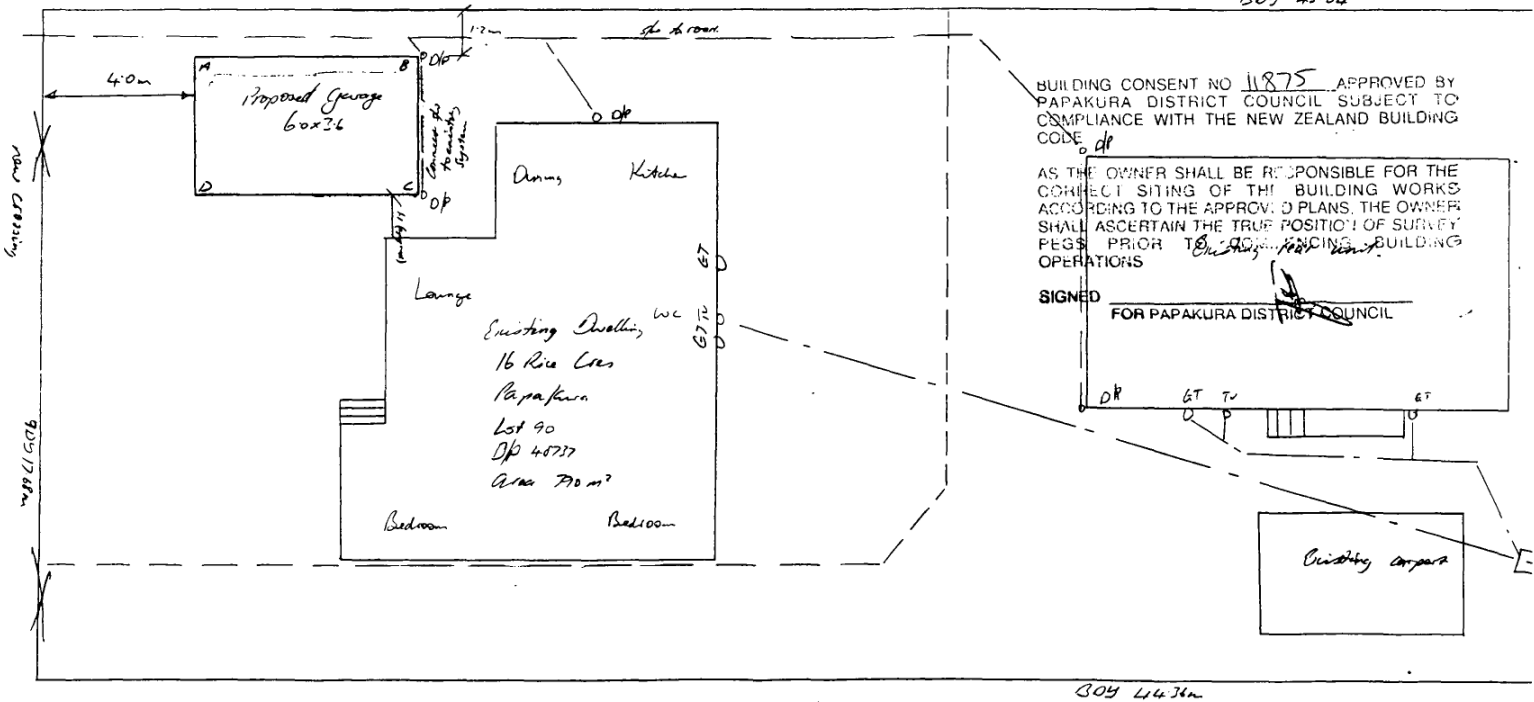 1.2m
s/w to road
D/P
4.0m
A
B
Proposed Garage
6.0x3.6
Connect s/w
to existing
System
D
C
D/P
new crossing
D/P
Dining
Kitchen
Lounge
GT
WC
TV
GT
Existing Dwelling
16 Rice Cres
Papakura
Lot 90
D/P
Area 790m²
Bedroom
Bedroom
BDY 17.68m
BUILDING CONSENT NO 11875 APPROVED BY
PAPAKURA DISTRICT COUNCIL SUBJECT TO
COMPLIANCE WITH THE NEW ZEALAND BUILDING
CODE
d/p
AS THE OWNER SHALL BE RESPONSIBLE FOR THE
CORRECT SITING OF THE BUILDING WORKS
ACCORDING TO THE APPROVED PLANS, THE OWNER
SHALL ASCERTAIN THE TRUE POSITION OF SURVEY
PEGS PRIOR TO COMMENCING BUILDING
OPERATIONS
Existing rear unit.
SIGNED
FOR PAPAKURA DISTRICT COUNCIL
DP
GT
TV
GT
Existing carport
BDY 44.36m